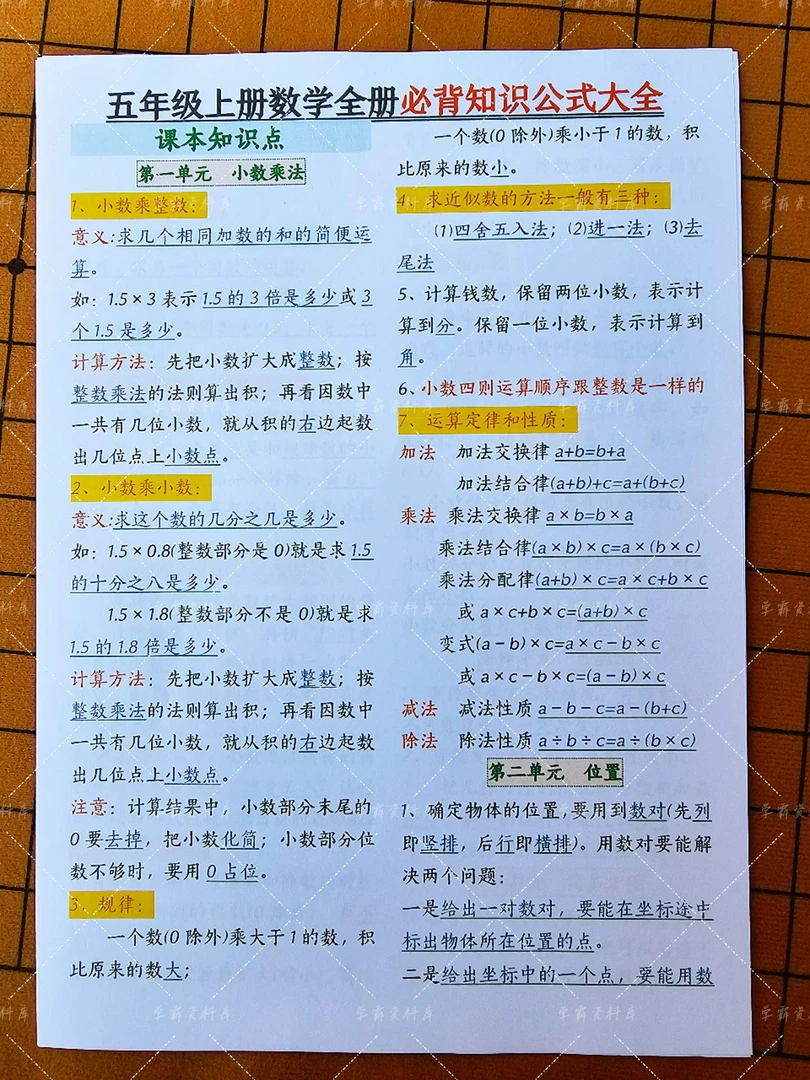 五年级上册数学全册必背知识公式大全
课本知识点
第一单元 小数乘法
1、小数乘整数：
意义:求几个相同加数的和的简便运
算。
如：1.5×3 表示 1.5 的 3 倍是多少或 3
个 1.5 是多少。
计算方法：先把小数扩大成整数；按
整数乘法的法则算出积；再看因数中
一共有几位小数，就从积的右边起数
出几位点上小数点。
2、小数乘小数：
意义:求这个数的几分之几是多少。
如：1.5×0.8(整数部分是 0)就是求 1.5
的十分之八是多少。
1.5×1.8(整数部分不是 0)就是求
1.5 的 1.8 倍是多少。
计算方法：先把小数扩大成整数；按
整数乘法的法则算出积；再看因数中
一共有几位小数，就从积的右边起数
出几位点上小数点。
注意：计算结果中，小数部分末尾的
0 要去掉，把小数化简；小数部分位
数不够时，要用 0 占位。
3、规律：
一个数(0 除外)乘大于 1 的数，积
比原来的数大；
一个数(0 除外)乘小于 1 的数，积
比原来的数小。
4、求近似数的方法一般有三种：
(1)四舍五入法；(2)进一法；(3)去
尾法
5、计算钱数，保留两位小数，表示计
算到分。保留一位小数，表示计算到
角。
6、小数四则运算顺序跟整数是一样的
7、运算定律和性质：
加法 加法交换律 a+b=b+a
加法结合律(a+b)+c=a+(b+c)
乘法 乘法交换律 a×b=b×a
乘法结合律(a×b)×c=a×(b×c)
乘法分配律(a+b)×c=a×c+b×c
或 a×c+b×c=(a+b)×c
变式(a-b)×c=a×c-b×c
或 a×c-b×c=(a-b)×c
减法 减法性质 a-b-c=a-(b+c)
除法 除法性质 a÷b÷c=a÷(b×c)
第二单元 位置
1、确定物体的位置,要用到数对(先列
即竖排，后行即横排)。用数对要能解
决两个问题：
一是给出一对数对，要能在坐标途中
标出物体所在位置的点。
二是给出坐标中的一个点，要能用数
学霸资料库